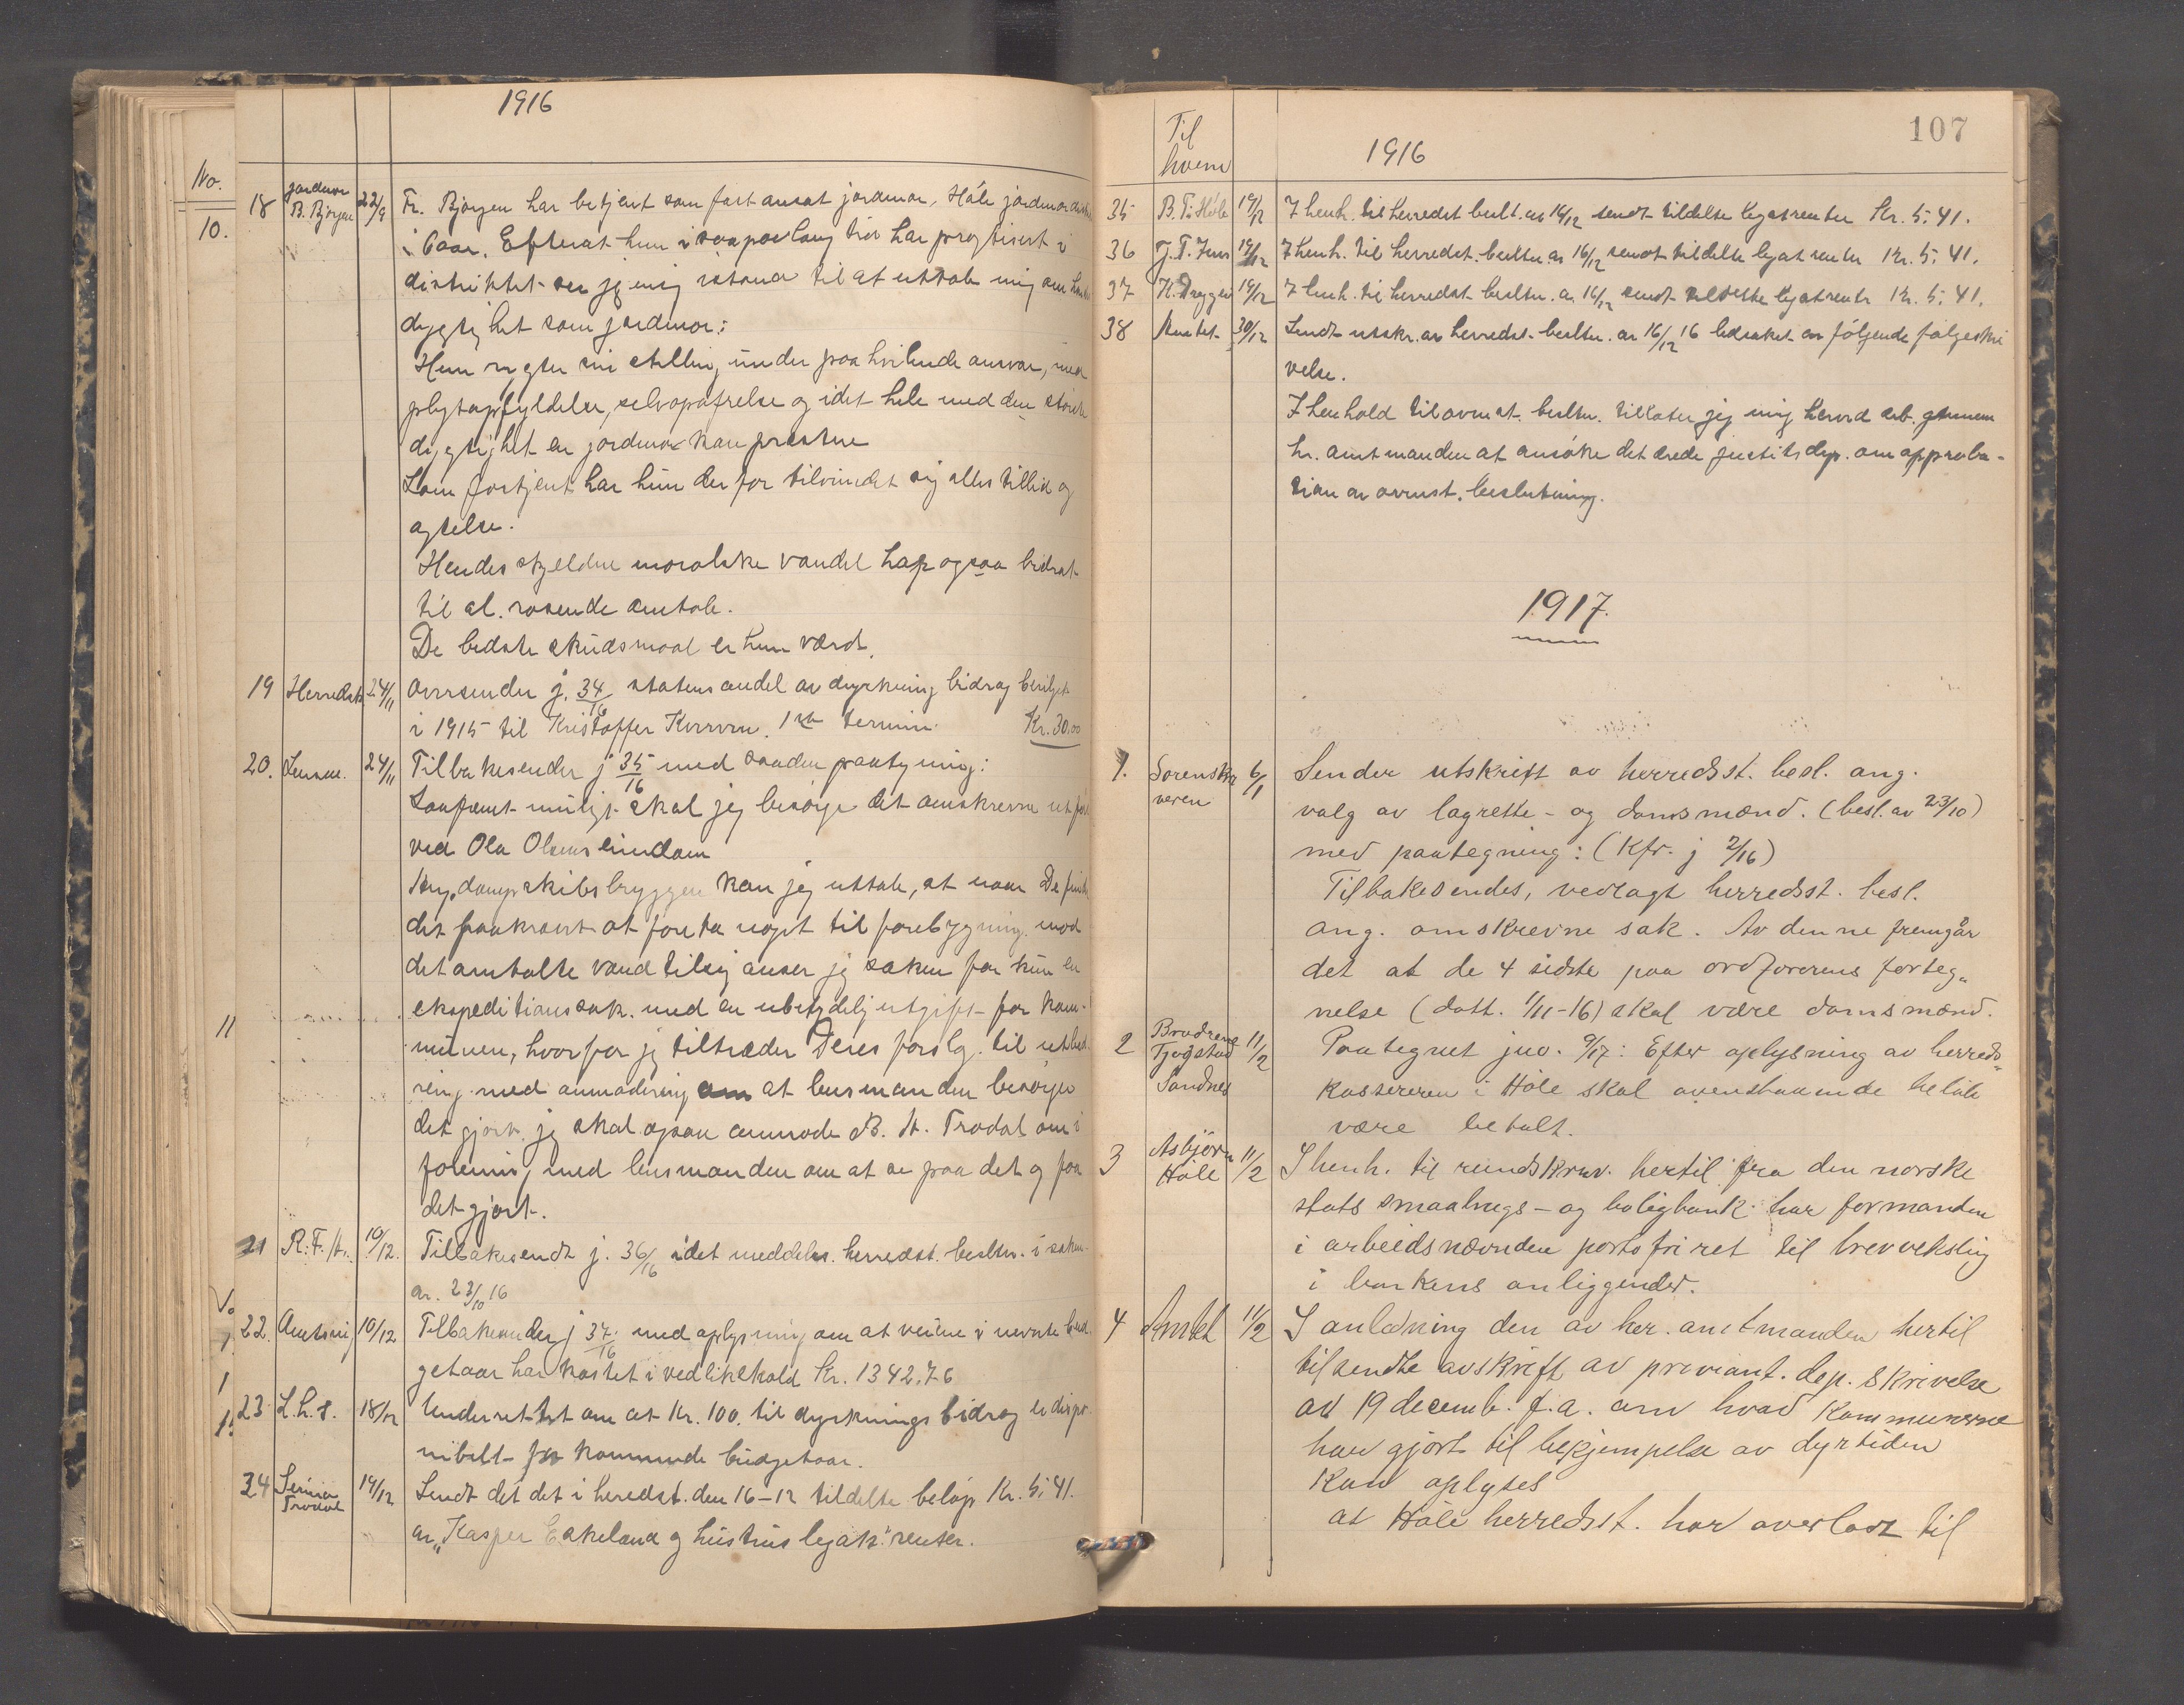 1916
No.
10.
11
18 jordmor B. Bjørgen 22/9 Fr. Bjørgen har betjent som fast ansat jordmor, Høle jordmordistrikt
i 6 aar. Efterat hun i saapas lang tid har praktisert i
distriktet ser jeg mig istand til at uttale mig om hendes
dygtighet som jordmor:
Hun rygter sin stilling under paahvilende ansvar, med
pligtopfyldelse, selvopofrelse og i det hele med den største
dygtighet en jordmor kan præstere
Som fortjent har hun derfor tilvundet sig alles tillid og
agtelse.
Hendes sjeldne moralske vandel har ogsaa bidrat
til al rosende omtale.
De bedste skudsmaal er hun værd.
19 Herredsk. 24/11 Oversender j. 34/16 statens andel av dyrkningsbidrag bevilget
i 1915 til Kristoffer Kverven. 1ste termin. Kr. 30.00
20. Lensm. 24/11 Tilbakesender j 35/16 med saadan paategning:
Saafremt mulig skal jeg besørge det omskrevne utført
ved Ola Olsens eiendom
Ang. dampskibsbryggen kan jeg uttale, at naar De finder
det paakrævet at foreta noget til forebygning mod
det omtalte vandtilsig anser jeg saken for kun en
ekspeditionssak med en ubetydelig utgift for kom-
munen, hvorfor jeg tiltræder Deres forslg. til utbed
ring med anmodning om at lensmanden besørger
det gjort. jeg skal ogsaa anmode B. H. Trodal om i
forening med lensmanden om at se paa det og faa
det gjort.
21 R. F. H. 10/12. Tilbakesendt j. 36/16 idet meddeles herredst. besltn. i saken
av 23/10 16
22. Amtsing 10/12 Tilbakesender j 37/16 med oplysning om at veiene i nevnte bud
getaar har kostet i vedlikehold Kr. 1342.76
23 L. h. s. 18/12 Underrettet om at Kr. 100. til dyrknings bidrag er dispo
nibelt for kommende budgetaar.
34 Serina Trodal 19/12 Sendt det det i heredst. den 16-12 tildelte beløp Kr. 5.41.
av "Kasper Eskeland og hustrus legat." renter.
107
Til hvem
1916
35 B. T. Høle 19/12 I henh. til herredst beslt. av 16/12 sendt tildelte legatrenter Kr. 5.41.
36 T. T. 19/12 I henh. til herredst. besltn av 16/12 sendt tildelte legatrenter Kr. 5.41.
37 19/12 I henh. til herredst besltn. av 16/12 sendt tildelte legatrenter Kr. 5.41.
38 Amtet 30/12 Sendt utskr. av herredst. besltn. av 16/12 16 ledsaket av følgende følgeskri
velse.
I henhold til ovenst. besltn. tillater jeg mig herved ærb. gjennem
hr. amtmanden at ansøke det ærede justitsdep. om approba-
tion av ovenst. beslutning.
1917.
1. Sorenskri veren 6/1 Sender utskrift av herredsst. besl. ang.
valg av lagrette- og domsmænd. (besl. av 23/10)
med paategning: (Kfr. j 2/16)
Tilbakesendes, vedlagt herredsst. besl.
ang. omskrevne sak. Av denne fremgår
det at de 4 sidste paa ordførerens forteg-
nelse (datt. 1/11-16) skal være domsmænd.
2 Brødrene Tjøgstad Sandnes 11/2 Paategnet jno. 9/17: Efter oplysning av herreds-
kassereren i Høle skal ovenstaaende beløb
være betalt.
3 Asbjørn Høle 11/2 I henh. til rundskriv. hertil fra den norske
stats smaabrugs- og boligbank har formanden
i arbeidsnævnden portofriret til brevveksling
i bankens anliggender.
4 Amtet 11/2 I anledning den av her. amtmanden hertil
tilsendte avskrift av proviant. dep. skrivelse
av 19 decemb. f.a. om hvad kommunerne
har gjort til bekjempelse av dyrtiden
kan oplyses
at Høle herredsst. har overladt til